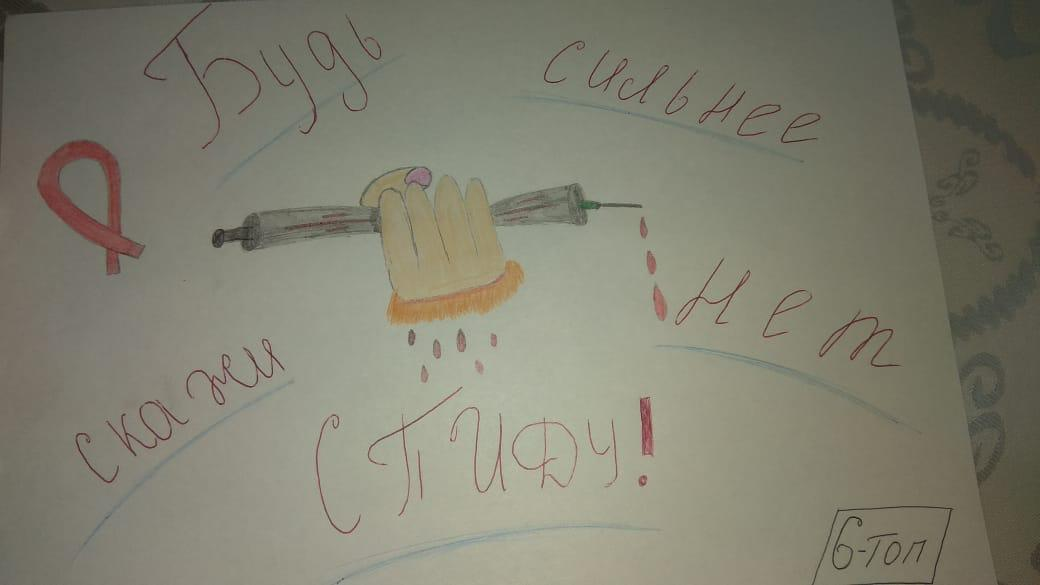 Будь сильнее
скажи нет
СПИДУ!
6-топ